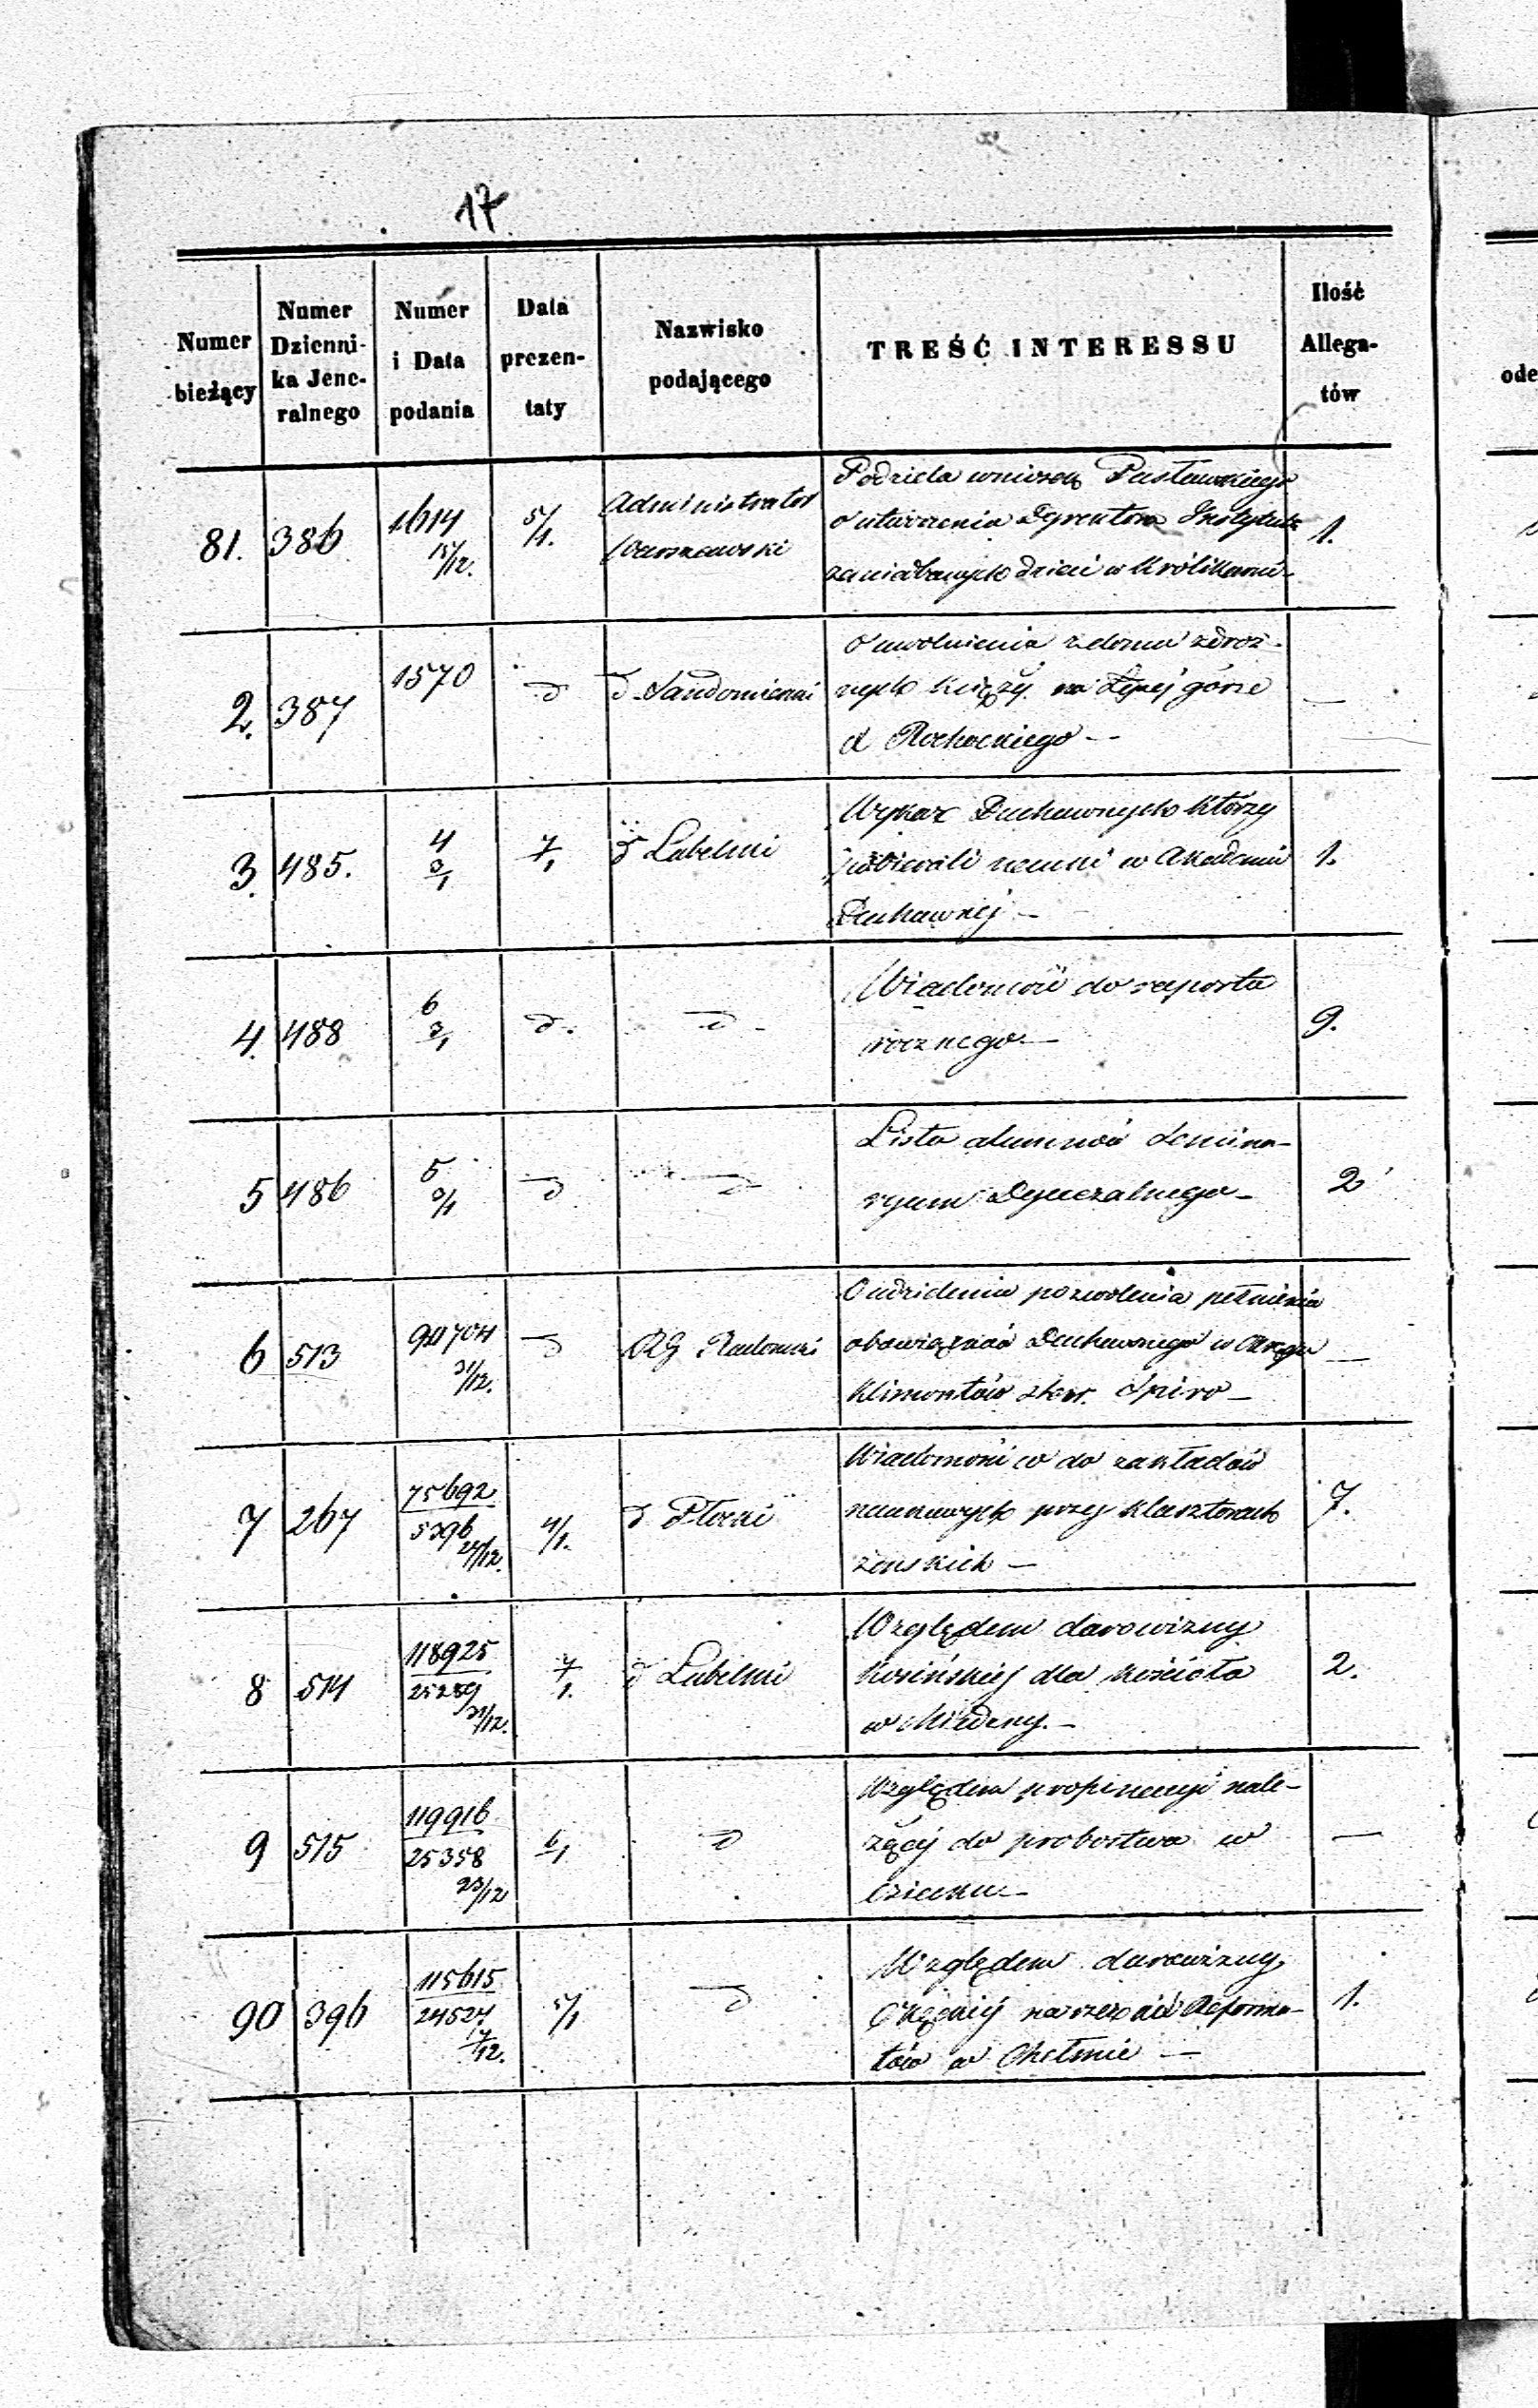 17
Numer bieżący
Numer Dzienni-ka Jene-ralnego
Numer i Data podania
Data prezen-taty
Nazwisko podającego
TREŚĆ INTERESSU
Ilość Allega-tów
ode
81. 386 1614 15/12. 5/1. Administrator Warszawski
Podziela wniosek Pusławskiego
o utwierdzenia Dyrektora Instytutu
zaniedbanych dzieci w Królikarni
1.
2. 387 1570 d d Sandomierski
O uwolnienie z domu zdroż-
nych księży na Łysej górze
d Rochockiego —
—
3. 485. 4 3/1 7/1 d Lubelski
Wykaz Duchownych którzy
pobierali nauki w Akademii
Duchownej —
1.
4. 488 6 3/1 d. d
Wiadomość do raportu
rocznego —
9.
5 486 5 3/1 d d
Lista alumnów Semina-
ryum Dyecezalnego —
2
6 513 94704 31/12. d RG Radomski
O udzielenie pozwolenia pełnienia
obowiązków Duchownego w Okręgu
Klimontów Spiro —
—
7 267 75692 5396 24/12. 4/1. d Płocki
Wiadomość co do zakładów
naukowych przy klasztorach
żeńskich —
7.
8 514 118925 25289 31/12. 7/1. d Lubelski
Względem darowizny
Kosińskiej dla kościoła
w —
2.
9 515 119916 25358 23/12 6/1 d
Względem propinacyi nale-
żącej do probostwa w
—
90 396 115615 24524 17/12. 5/1 d
Względem darowizny
na rzecz Reforma-
tów w Chełmie —
1.